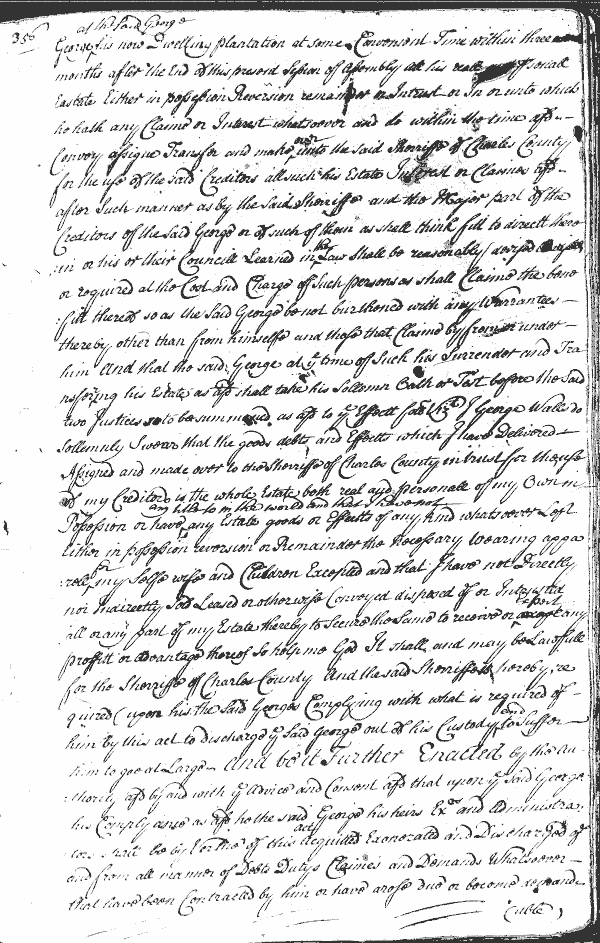 356
at the said George
George his now Dwelling plantation at some Convenient Time within three
months after the End of this present Session of Assembly all his reall personall
Eastate Either in possession Reversion remander or Intrest or In or unto which
he hath any Claime or Interest whatsoever and do within the time afd
Convey assigne Transfer and make over unto the said Sherriffe of Charles County
for the use of the said Creditors all such his Estate Interest or Claimes afd
after Such manner as by the Said Sherriffe and the Major part of the
Creditors of the said George or of such of them as shall think fitt to direct there
in or his or their Councill Learned in the Law Shall be reasonably devised
or required at the Cost and Charge of Such persons as shall Claime the bene
fitt thereof so as the Said George be not burthened with any Warrantes
thereby other than from himselfe and those that Claime by from or under
him And that the said George at ye time of Such his Surrender and Tra
nsfering his Estate as afd shall take his Sollemn Oath or Test before the Said
two Justices so to be summoned as afd to ye Effect foll Vizt I George Walls do
Sollemnly Swear that the goods debts and Effects which I have Delivered
Assigned and made over to the Sherriffe of Charles County in trust for the use
of my Creditors is the whole Estate both real and personale of my Own in
any title to in the world and that I have not
Possession or have any Estate goods or Effects of any kind whatsoever Left
Either in possession reversion or Remainder the necessary wearing appa
rele for my Selfe wife and Children Excepted and that I have not Directly
nor Indirectly Sold Leased or otherwise Conveyed disposed of or Intrusted
all or any part of my Estate thereby to Secure the Same to receive or Expect any
proffitt or advantage thereof So help me God It shall and may be Lawfull
for the Sherriffe of Charles County and the said Sherriffe is hereby re
quired (upon his the Said Georges Complying with what is required of
him by this act to discharge ye Said George out of his Custody and to Suffer
him to goe at Large And be it Further Enacted by the Au
thority afd by and with ye Advice and Consent afd that upon ye Said George
his Complyance as afd he the said George his heirs Exrs and Administra
tors shall be by Vertue of this act acquitted Exonerated and Discharged of
and from all manner of Debts Dutys Claimes and Demands Whatsoever
that have been Contracted by him or have arose due or become demand
(able,